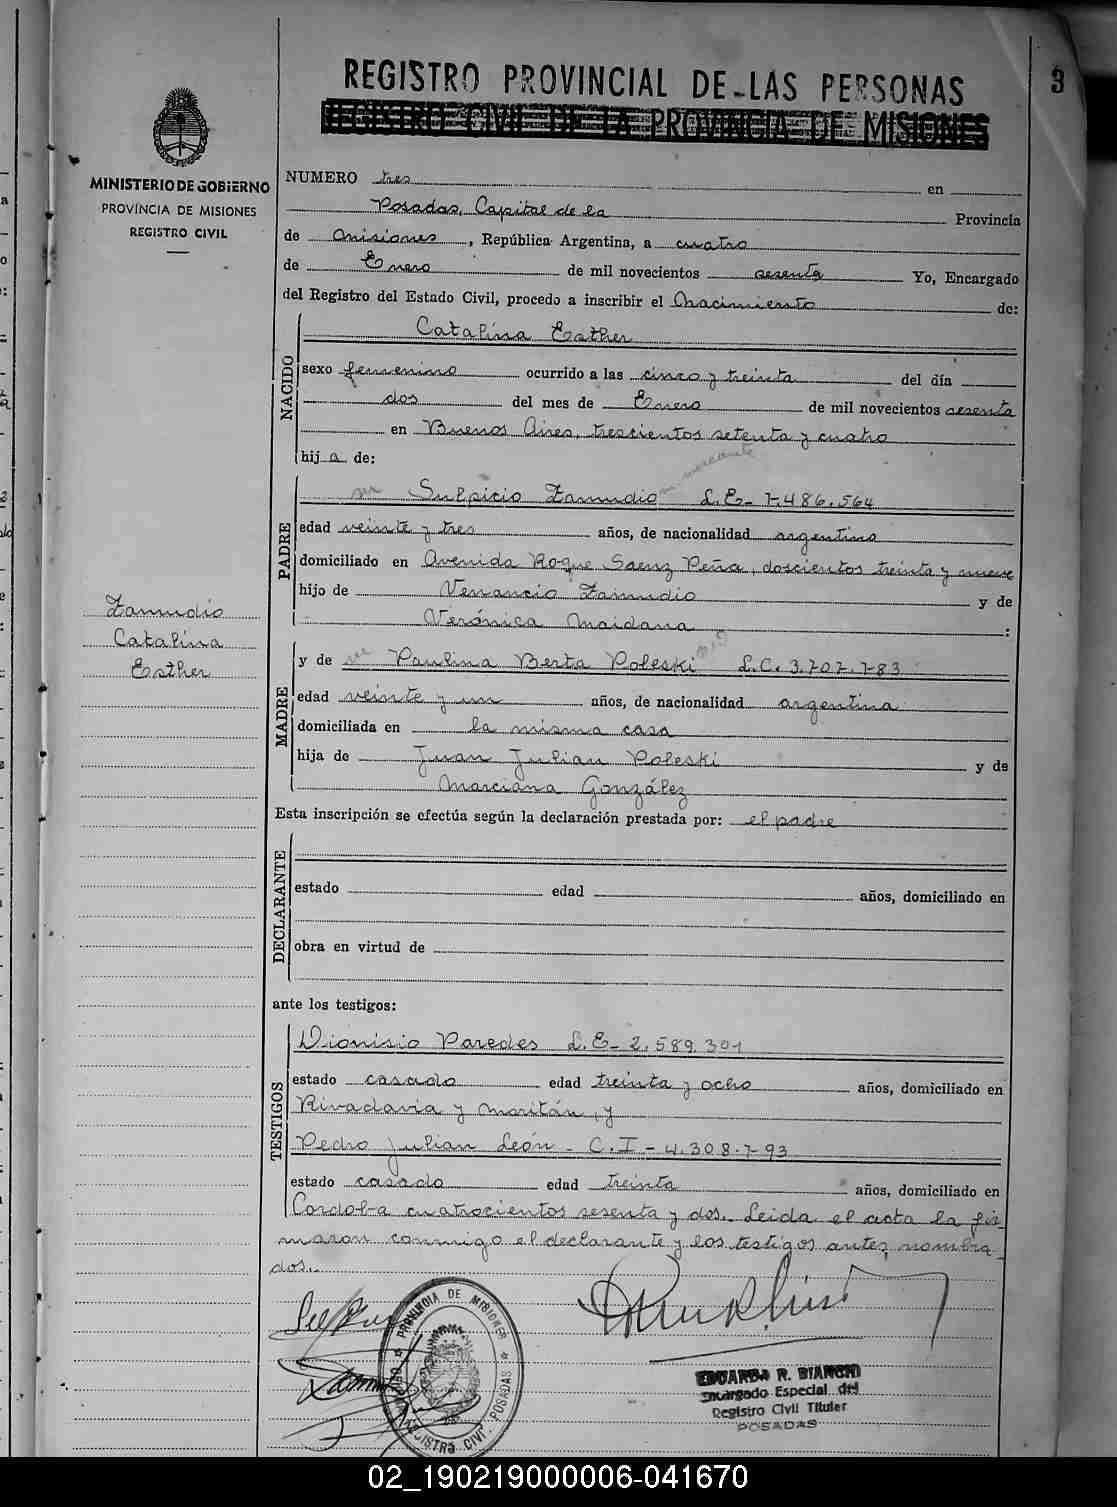 REGISTRO PROVINCIAL DE LAS PERSONAS
REGISTRO CIVIL DE LA PROVINCIA DE MISIONES
3
MINISTERIO DE GOBIERNO
PROVINCIA DE MISIONES
REGISTRO CIVIL
NUMERO tres en
Posadas, Capital de la Provincia
de Misiones, República Argentina, a cuatro
de Enero de mil novecientos sesenta Yo, Encargado
del Registro del Estado Civil, procedo a inscribir el Nacimiento de:
NACIDO
Catalina Esther
sexo femenino ocurrido a las cinco y treinta del día
dos del mes de Enero de mil novecientos sesenta
en Buenos Aires, trescientos setenta y cuatro
hij a de:
PADRE
Sulpicio Zamudio L.E- 7.486.564
edad veinte y tres años, de nacionalidad argentino
domiciliado en Avenida Roque Saenz Peña, doscientos treinta y nueve
hijo de Venancio Zamudio y de
Verónica Maidana :
MADRE
y de Paulina Berta Poleski L.C. 3.707.783
edad veinte y un años, de nacionalidad argentina
domiciliada en la misma casa
hija de Juan Julian Poleski y de
Marciana González
Zamudio
Catalina
Esther
Esta inscripción se efectúa según la declaración prestada por: el padre
DECLARANTE
estado edad años, domiciliado en
obra en virtud de
ante los testigos:
TESTIGOS
Dionisio Paredes L.E- 2.589.301
estado casado edad treinta y ocho años, domiciliado en
Rivadavia y Moritán, y
Pedro Julian León - C.I - 4.308.793
estado casado edad treinta años, domiciliado en
Cordoba cuatrocientos sesenta y dos. Leida el acta la fir-
maron conmigo el declarante y los testigos antes nombra-
dos.-
PROVINCIA DE MISIONES
REGISTRO CIVIL POSADAS
EDUARDA R. BIANCHI
Encargado Especial del
Registro Civil Titular
POSADAS
02_190219000006-041670